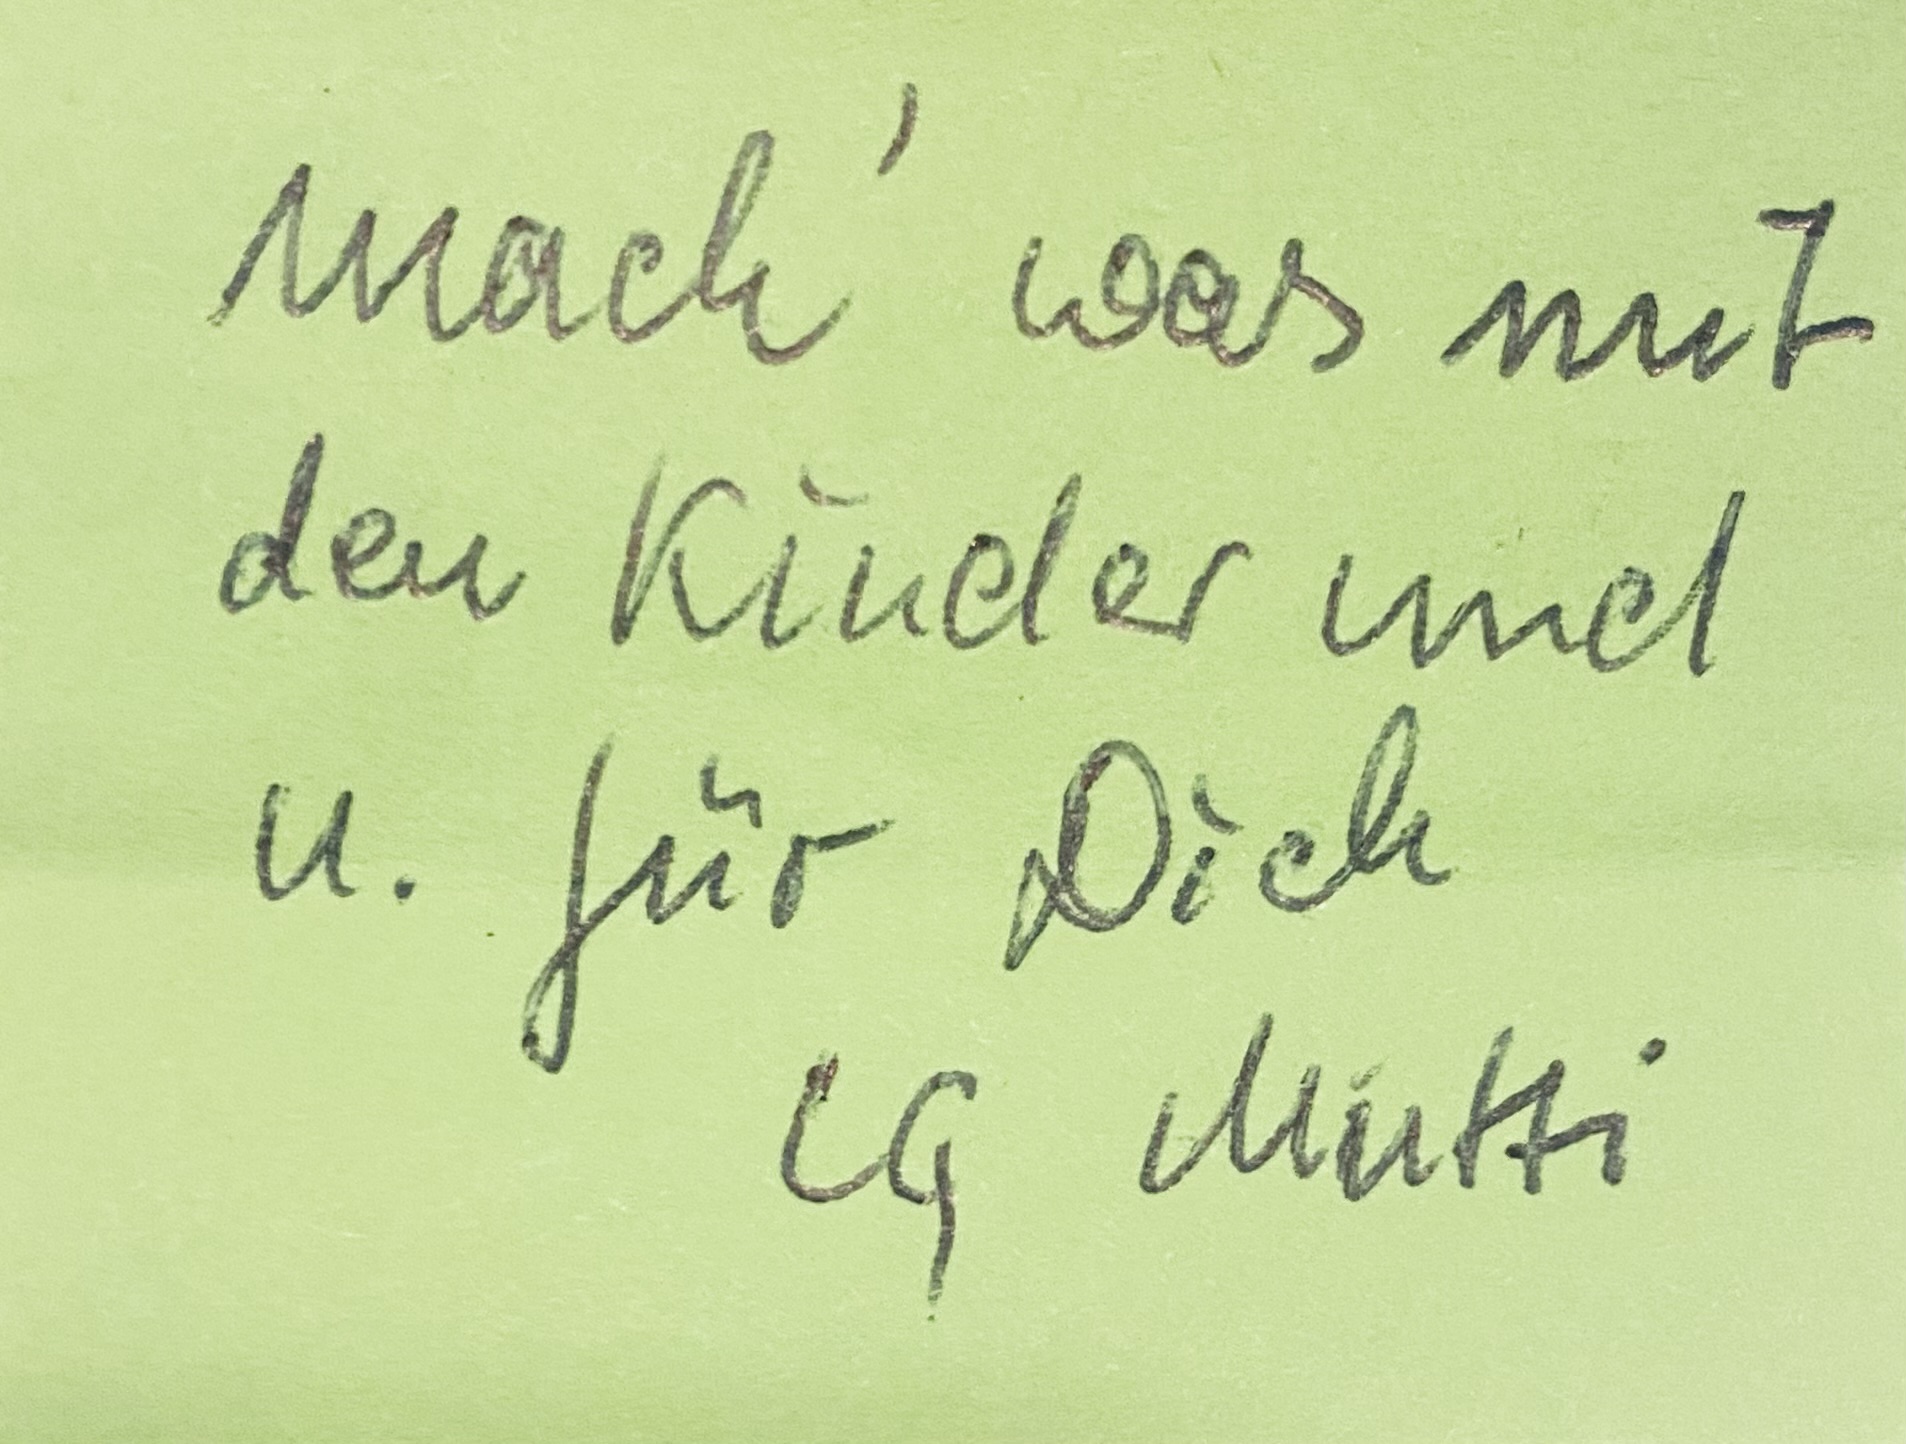 Mach' was mit
den Kinder und
u. für Dich
LG Mutti